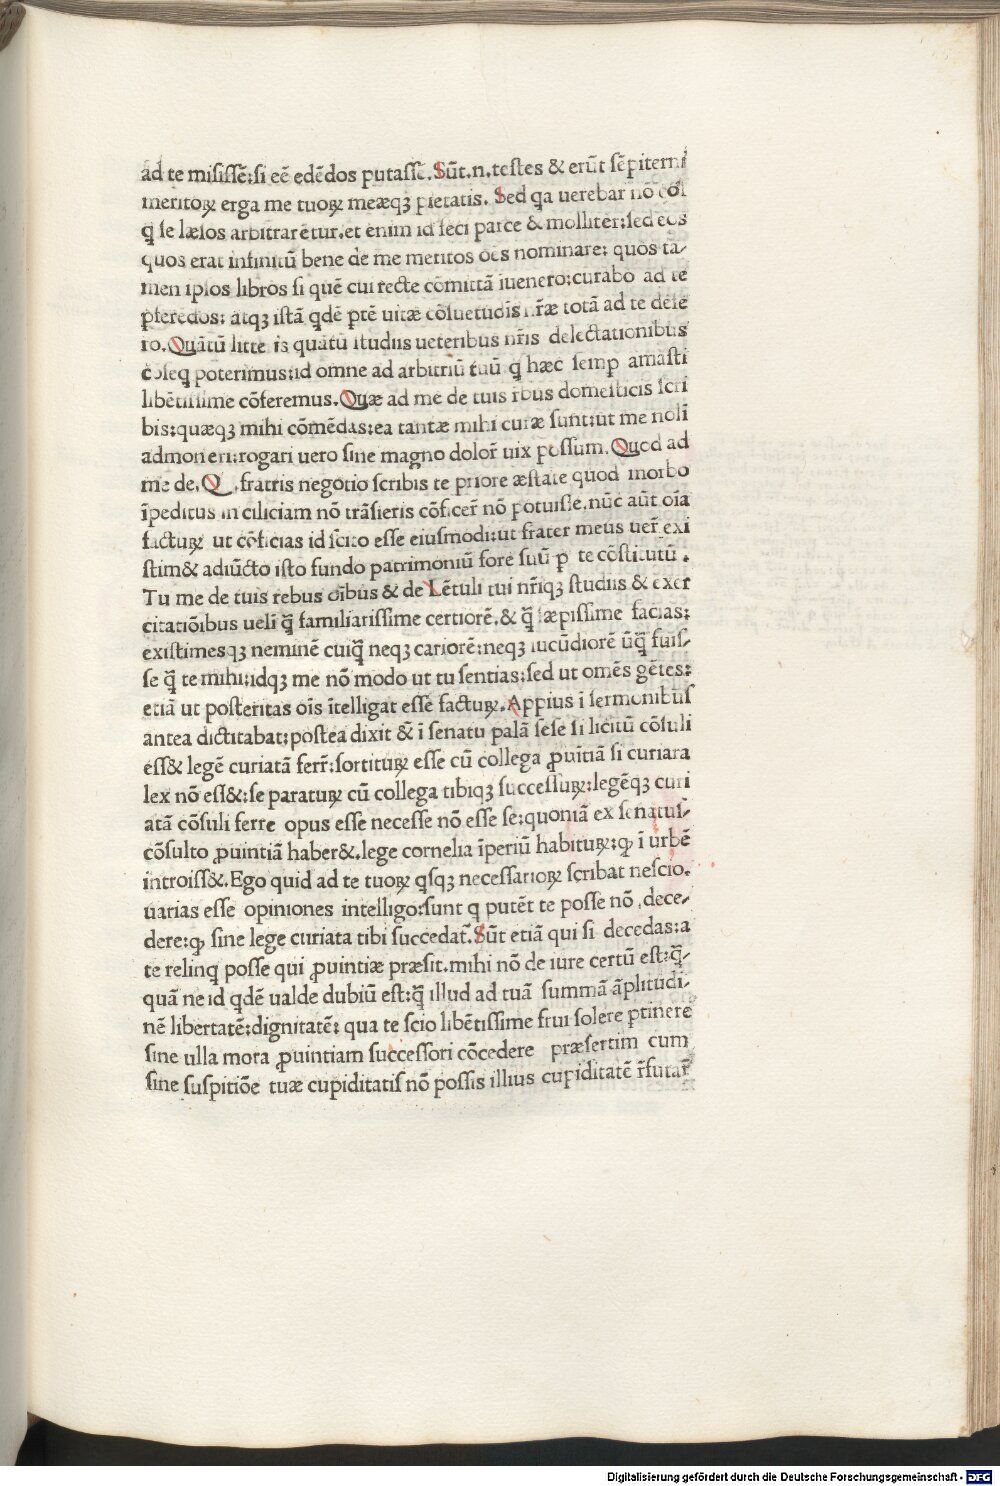 ad te misissē:si eē edēdos putassē.Sūt.n.testes & erūt sēpiterni
meritoꝝ erga me tuoꝝ meæqꝫ pietatis. Sed qa uerebar nō eos
q̄ se læsos arbitrarētur.et enim id feci parce & molliter:sed eos
quos erat infinitū bene de me meritos oēs nominare: quos ta⸗
men ipsos libros si quē cui recte cōmittā iuenero:curabo ad te
pferēdos: atqꝫ istā qdē ptē uitæ cōsuetudīs nr̄æ totā ad te defe
ro. Quātū litte is quātū studiis ueteribus nr̄is delectationibus
cōseq poterimus:id omne ad arbitriū tuū q hæc semp amasti
libētissime cōferemus. Quæ ad me de tuis rbus domesticis scri
bis:quæqꝫ mihi cōmēdas:ea tantæ mihi curæ sunt:ut me nolī
admoneri:rogari uero sine magno dolor̄ uix possum. Quod ad
me de. Q .fratris negotio scribis te priore æstate quod morbo
īpeditus in ciliciam nō trāsieris cōficer̄ nō potuisse.nūc aūt oīa
facturꝝ ut cōficias id scito esse eiusmodi:ut frater meus uer̄ exi
stim& adiūcto isto fundo patrimoniū fore suū p te cōstitutū .
Tu me de tuis rebus oībus & de Lētuli tui nr̄iqꝫ studiis & exer
citatiōibus uelī q̄̄ familiarissime certiorē.& q̄̄ sæpissime facias:
existimesqꝫ neminē cuiq̄̄ neqꝫ cariorē:neqꝫ iucūdiorē ūq̄̄ fuis⸗
se q̄̄ te mihi:idqꝫ me nō modo ut tu sentias:sed ut omēs gētes:
etiā ut posteritas oīs ītelligat esse facturꝝ. Appius ī sermonibus
antea dictitabat:postea dixit & ī senatu palā sese si licitū cōsuli
ess& legē curiatā ferr̄:sortiturꝝ esse cū collega ꝓuītiā si curiara
lex nō ess&:se paraturꝝ cū collega tibiqꝫ successurꝝ:legēqꝫ curi
atā cōsuli ferre opus esse necesse nō esse se:quoniā ex senatus⸗
cōsulto ꝓuintiā haber&.lege cornelia īperiū habiturꝝ:ꝙ ī urbē
introiss&.Ego quid ad te tuoꝝ qsqꝫ necessarioꝝ scribat nescio.
uarias esse opiniones intelligo:sunt q putēt te posse nō dece⸗
dere:ꝙ sine lege curiata tibi succedat̄. Sūt etiā qui si decedas:a
te relinq posse qui ꝓuintiæ præsit.mihi nō de iure certū est:q̄̄⸗
quā ne id qdē ualde dubiū est:q̄̄ illud ad tuā summā āplitudi⸗
nē libertatē:dignitatē: qua te scio libētissime frui solere ptinere
sine ulla mora ꝓuintiam successori cōcedere præsertim cum
sine suspitiōe tuæ cupiditatis nō possis illius cupiditatē r̄futar̄
Digitalisierung gefördert durch die Deutsche Forschungsgemeinschaft - DFG